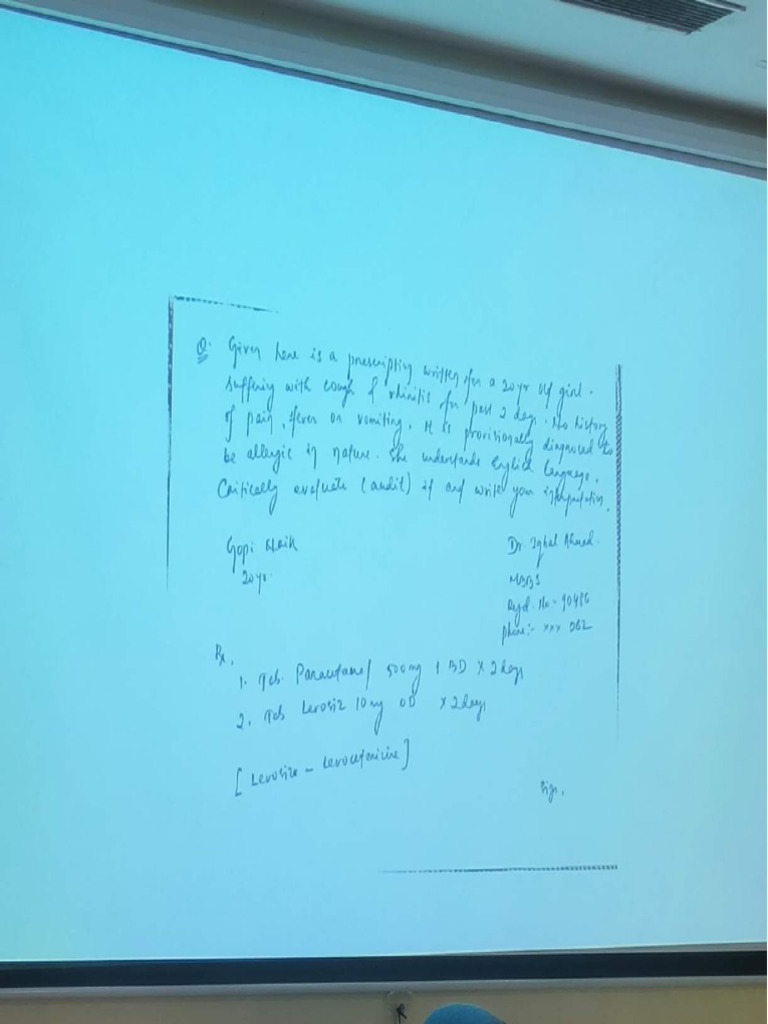 Q. Given here is a prescription written for a 20 yr old girl.
suffering with cough & rhinitis for past 2 days. No history
of pain, fever or vomiting. It is provisionally diagnosed to
be allergic in nature. She understands English language.
Critically evaluate (audit) it and write your interpretation.
Gopi
20yr.
Dr. Iqbal Ahmed.
MBBS
Regd. No - 90486
phone:- xxx 062
Rx,
1. Tab. Paracetamol 500mg 1 BD x 2 days
2. Tab Levosiz 10mg OD x 2 days
[Levosiz - Levocetirizine]
Sign.